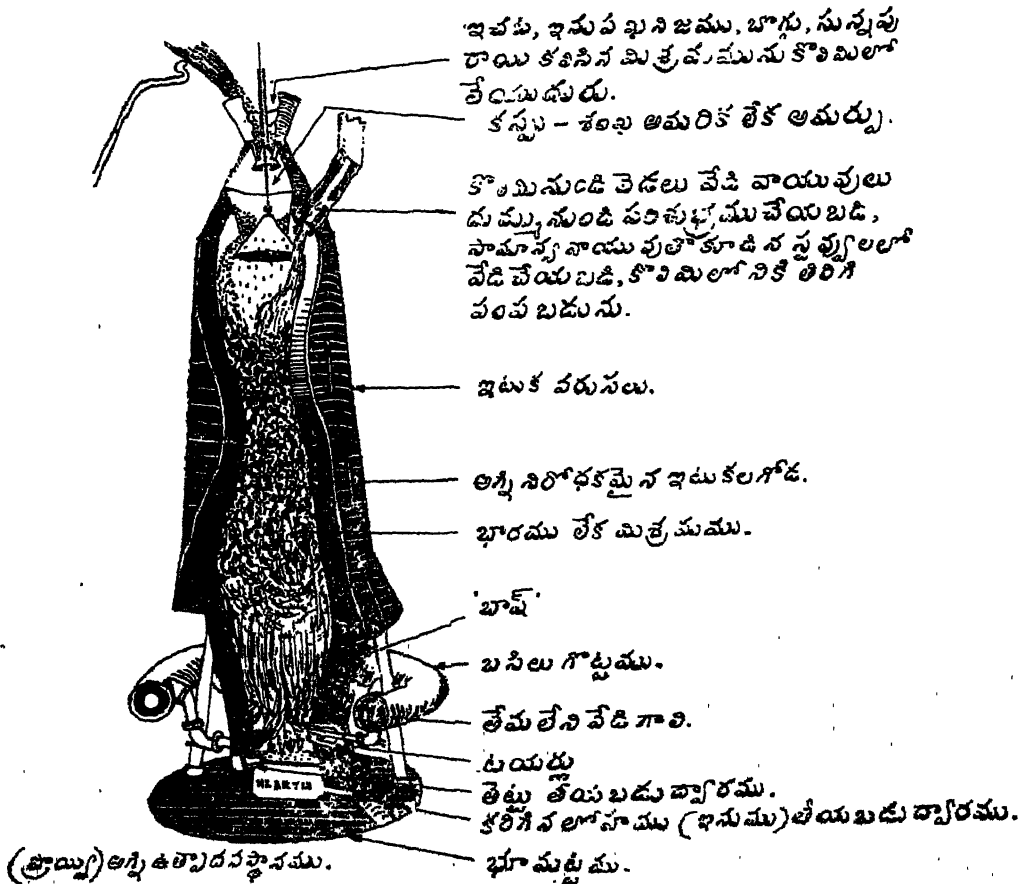 ఇచట, ఇనుప ఖనిజము, బొగ్గు, సున్నపు
రాయి కలిసిన మిశ్రమమును కొలిమిలో
వేయుదురు.
కప్పు - శంఖ అమరిక లేక అమర్పు.
కొలిమినుండి వెడలు వేడి వాయువులు
దుమ్మునుండి పరిశుభ్రము చేయబడి,
సామాన్య వాయువుతో కూడిన స్టవ్వులలో
వేడి చేయబడి, కొలిమిలోనికి తిరిగి
పంపబడును.
ఇటుక వరుసలు.
అగ్ని నిరోధకమైన ఇటుకలగోడ.
భారము లేక మిశ్రమము.
'బాష్'
బసిలు గొట్టము.
తేమలేని వేడి గాలి.
టయర్లు
తెట్టు తీయబడు ద్వారము.
కరిగిన లోహము (ఇనుము) తీయబడు ద్వారము.
HEARTH
(ప్రొయ్యి) అగ్ని ఉత్పాదనస్థానము.
భూమట్టము.